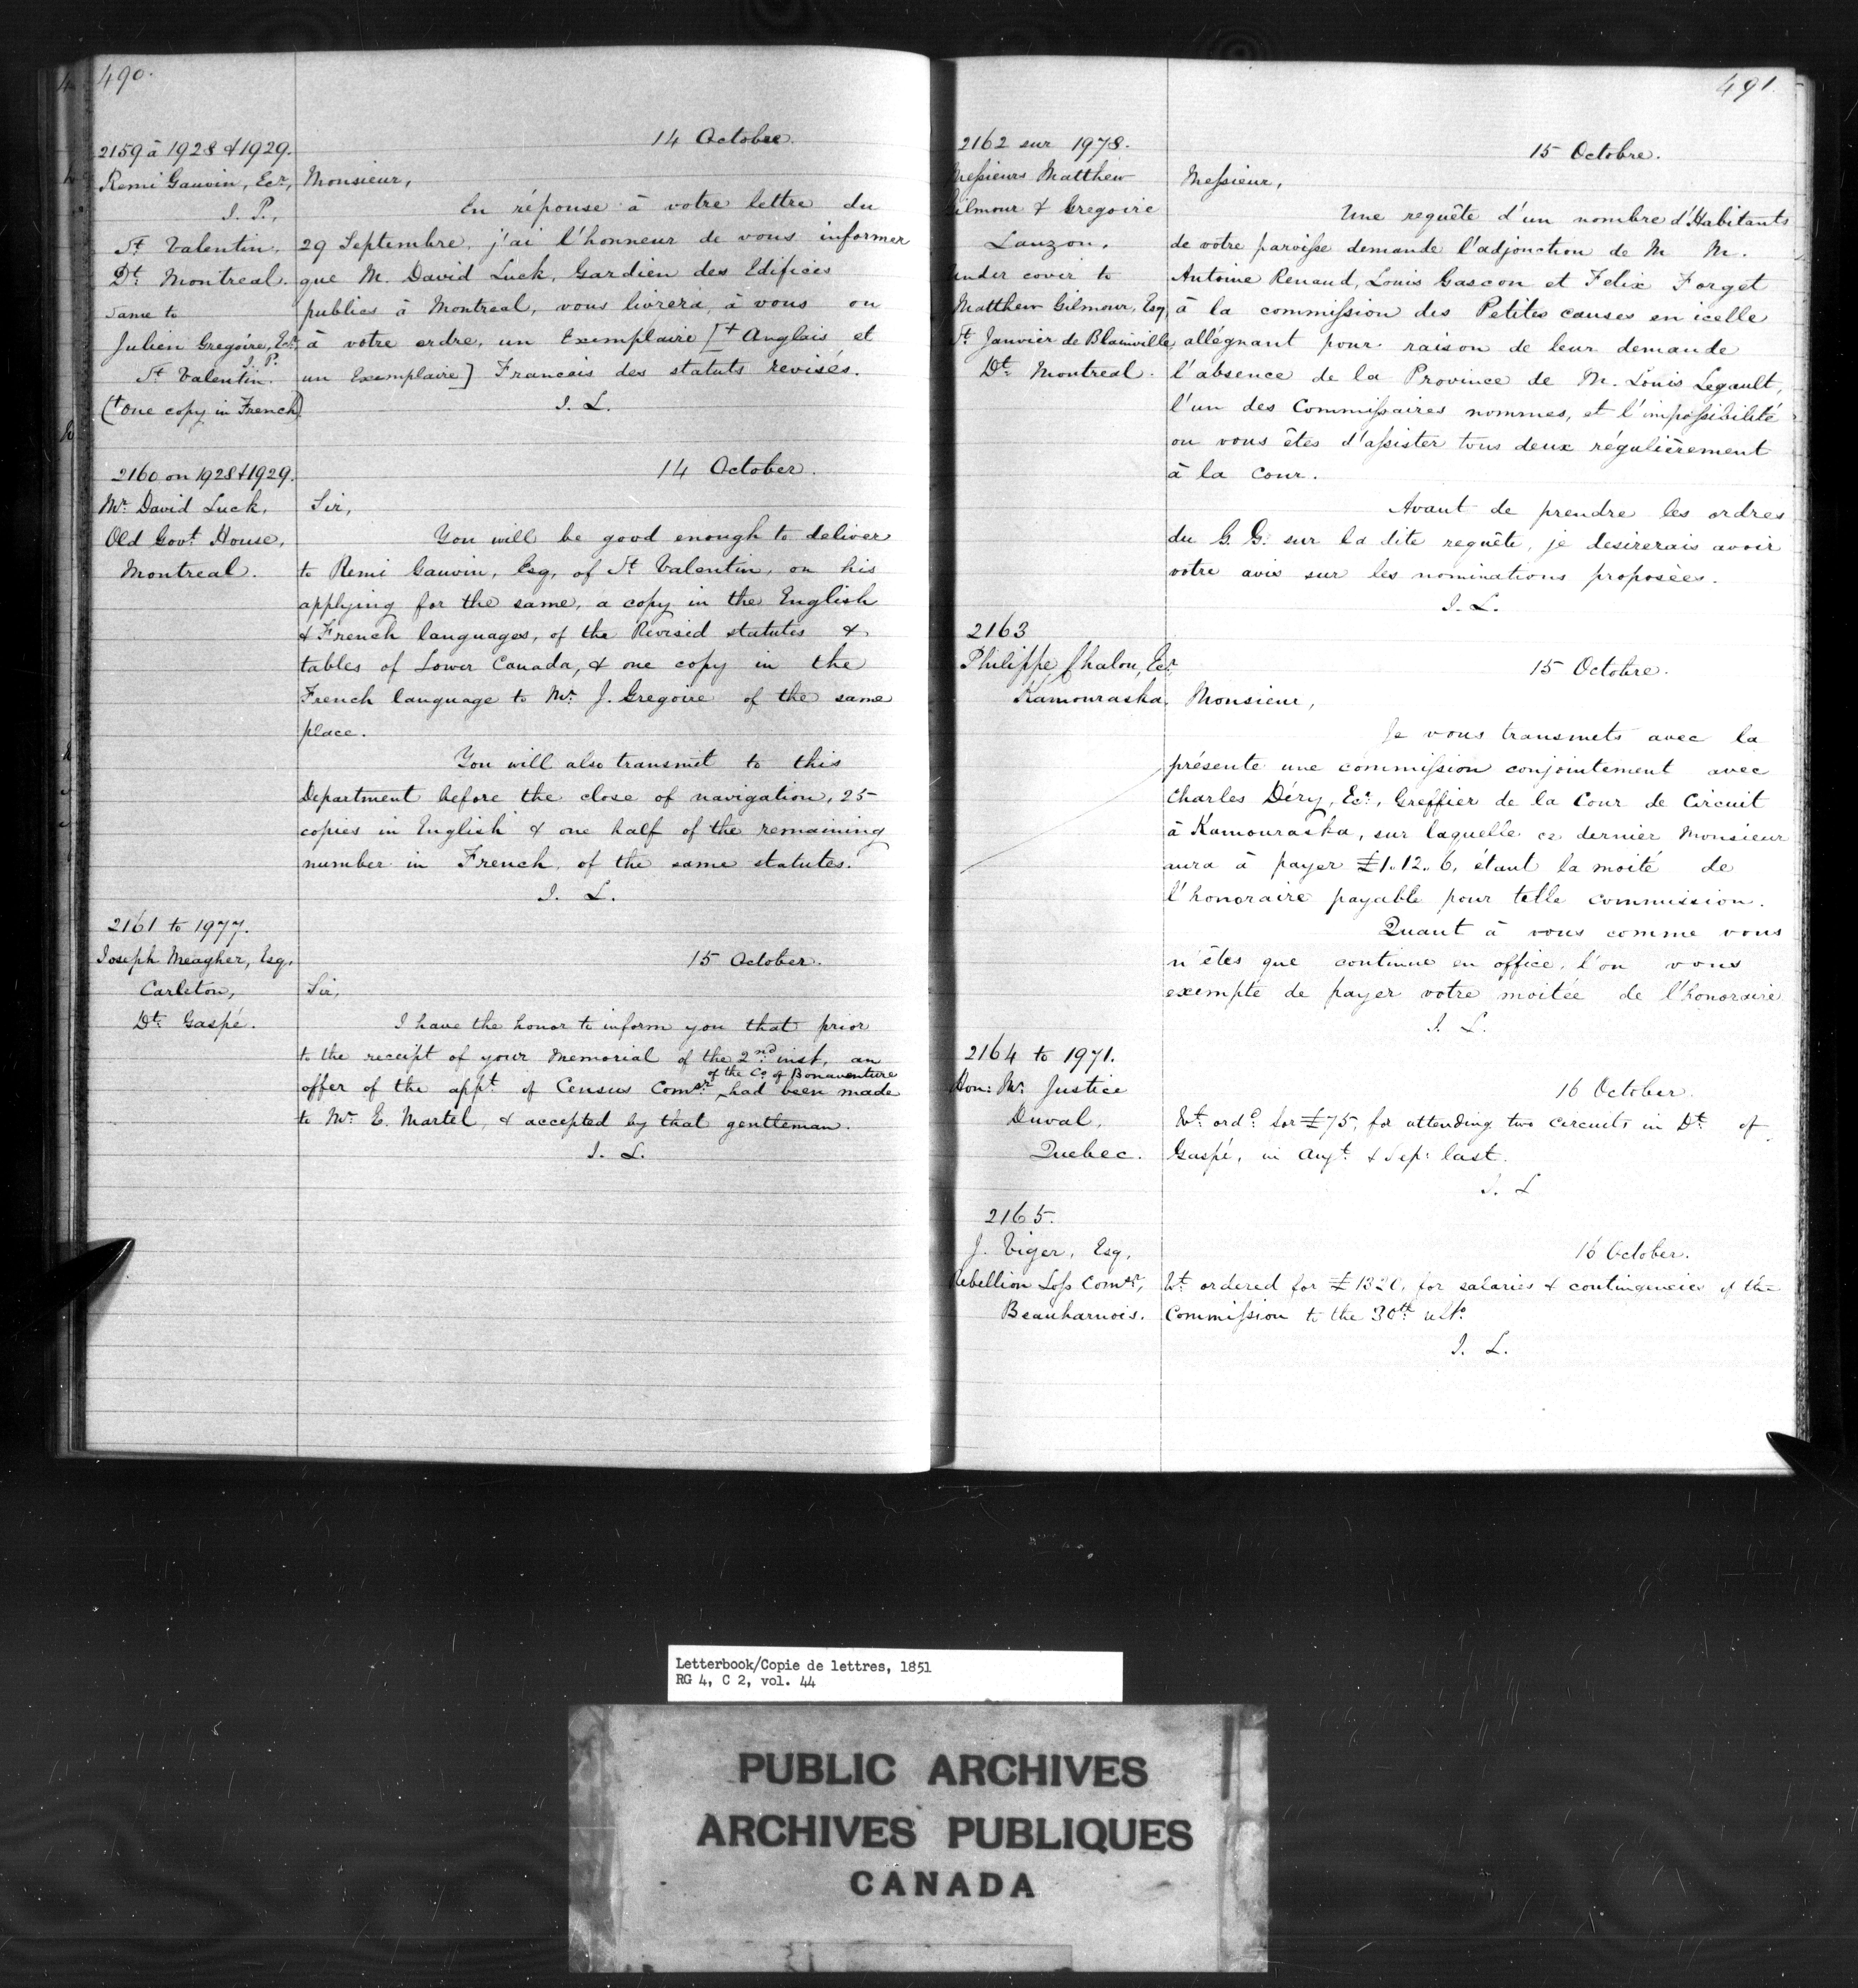 490.
2159 à 1928 & 1929.
Remi Gauvin, Ecr,
J. P.,
St Valentin,
Dt Montreal.
Same to
Julien Gregoire, Ecr
J. P.
St Valentin.
(+ One copy in French)
14 Octobre.
Monsieur,
En réponse à votre lettre du
29 Septembre, j'ai l'honneur de vous informer
que M. David Luck, Gardien des Edifices
publics à Montreal, vous livrera, à vous ou
à votre ordre, un Exemplaire [+ Anglais et
un Exemplaire] Francais des statuts revisés.
J. L.
2160 on 1928 & 1929.
Mr David Luck,
Old Govt House,
Montreal.
14 October.
Sir,
You will be good enough to deliver
to Remi Gauvin, Esq, of St Valentin, on his
applying for the same, a copy in the English
& French languages, of the Revised statutes &
tables of Lower Canada, & one copy in the
French language to Mr J. Gregoire of the same
place.
You will also transmit to this
Department before the close of navigation, 25
copies in English & one half of the remaining
number in French, of the same statutes.
J. L.
2161 to 1977.
Joseph Meagher, Esq.
Carleton,
Dt Gaspé.
15 October.
Sir,
I have the honor to inform you that prior
to the receipt of your Memorial of the 2nd inst, an
offer of the appt of Census Comsr of the Co of Bonaventure had been made
to Mr E. Martel, & accepted by that gentleman.
J. L.
491
2162 sur 1978.
Messieurs Matthew
Gilmour & Gregoire
Lauzon.
Under cover to
Matthew Gilmour, Esq,
St Janvier de Blainville,
Dt Montreal.
15 Octobre.
Messieur,
Une requête d'un nombre d'Habitants
de votre paroisse demande l'adjonction de M M.
Antoine Renaud, Louis Gascon et Felix Forget
à la commission des Petites causes en icelle
allégnant pour raison de leur demande
l'absence de la Province de M. Louis Legault,
l'un des Commissaires nommes, et l'impossibilité
ou vous êtes d'assister tous deux régulièrement
à la Cour.
Avant de prendre les ordres
du G. G. sur la dite requête, je desirerais avoir
votre avis sur les nominations proposées.
J. L.
2163
Philippe Chalou, Ecr,
Kamouraska.
15 Octobre.
Monsieur,
Je vous transmets avec la
présente une commission conjointement avec
Charles Déry, Ecr, Greffier de la Cour de Circuit
à Kamouraska, sur laquelle ce dernier Monsieur
aura à payer £1..12..6, étant la moité de
l'honoraire payable pour telle commission.
Quant à vous comme vous
n'êtes que continue en office, l'on vous
exempte de payer votre moitée de l'honoraire
J. L.
2164 to 1971.
Hon: Mr Justice
Duval,
Quebec.
16 October.
Wt ordd for £75, for attending two circuits in Dt of
Gaspé, in Augt & Sep: last.
J. L
2165.
J. Viger, Esq,
Rebellion Loss Comsr,
Beauharnois.
16 October.
Wt ordered for £1320, for salaries & contingencies of the
Commission to the 30th ulto
J. L.
Letterbook/Copie de lettres, 1851
RG 4, C 2, vol. 44
PUBLIC ARCHIVES
ARCHIVES PUBLIQUES
CANADA